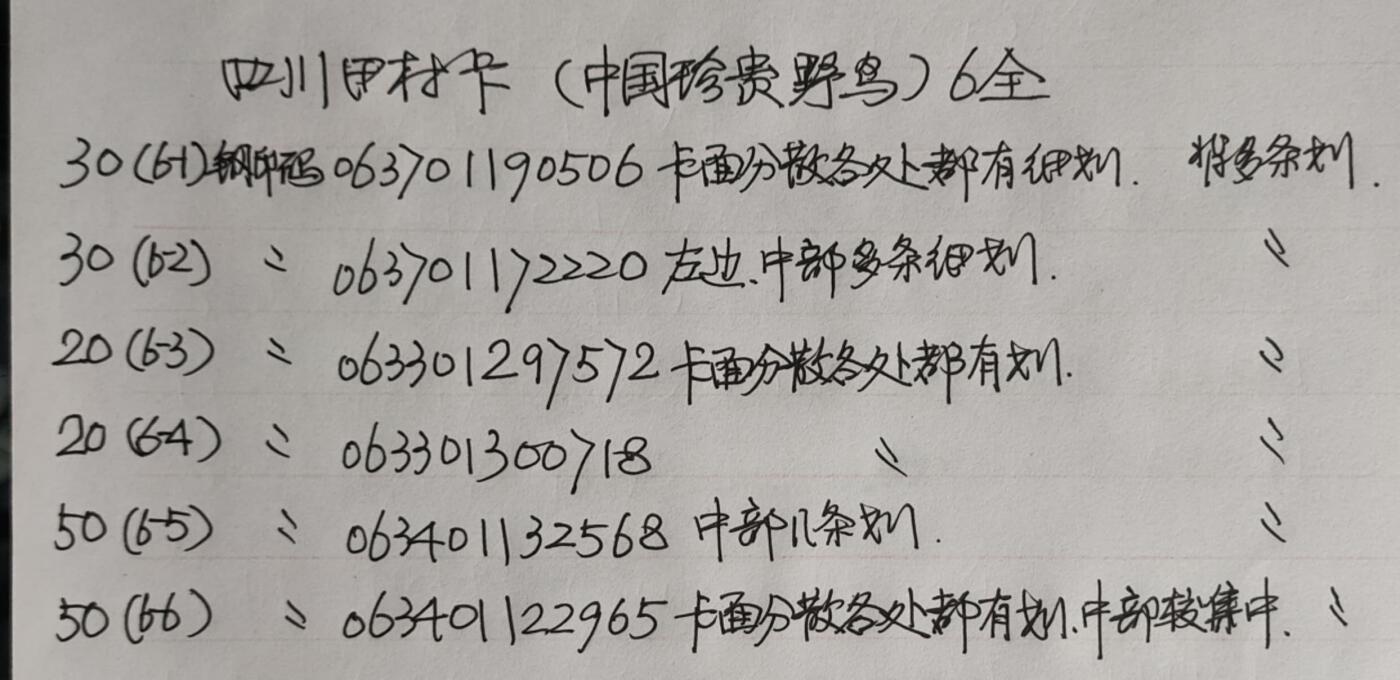 四川田村卡（中国珍贵野鸟）6全
30(6-1)钢印码063701190506卡面分散各处都有细划. 背多条划.
30(6-2) 〃 063701172220左边.中部多条细划. 〃
20(6-3) 〃 063301297572卡面分散各处都有划. 〃
20(6-4) 〃 063301300718 〃 〃
50(6-5) 〃 063401132568中部几条划. 〃
50(6-6) 〃 063401122965卡面分散各处都有划.中部较集中. 〃